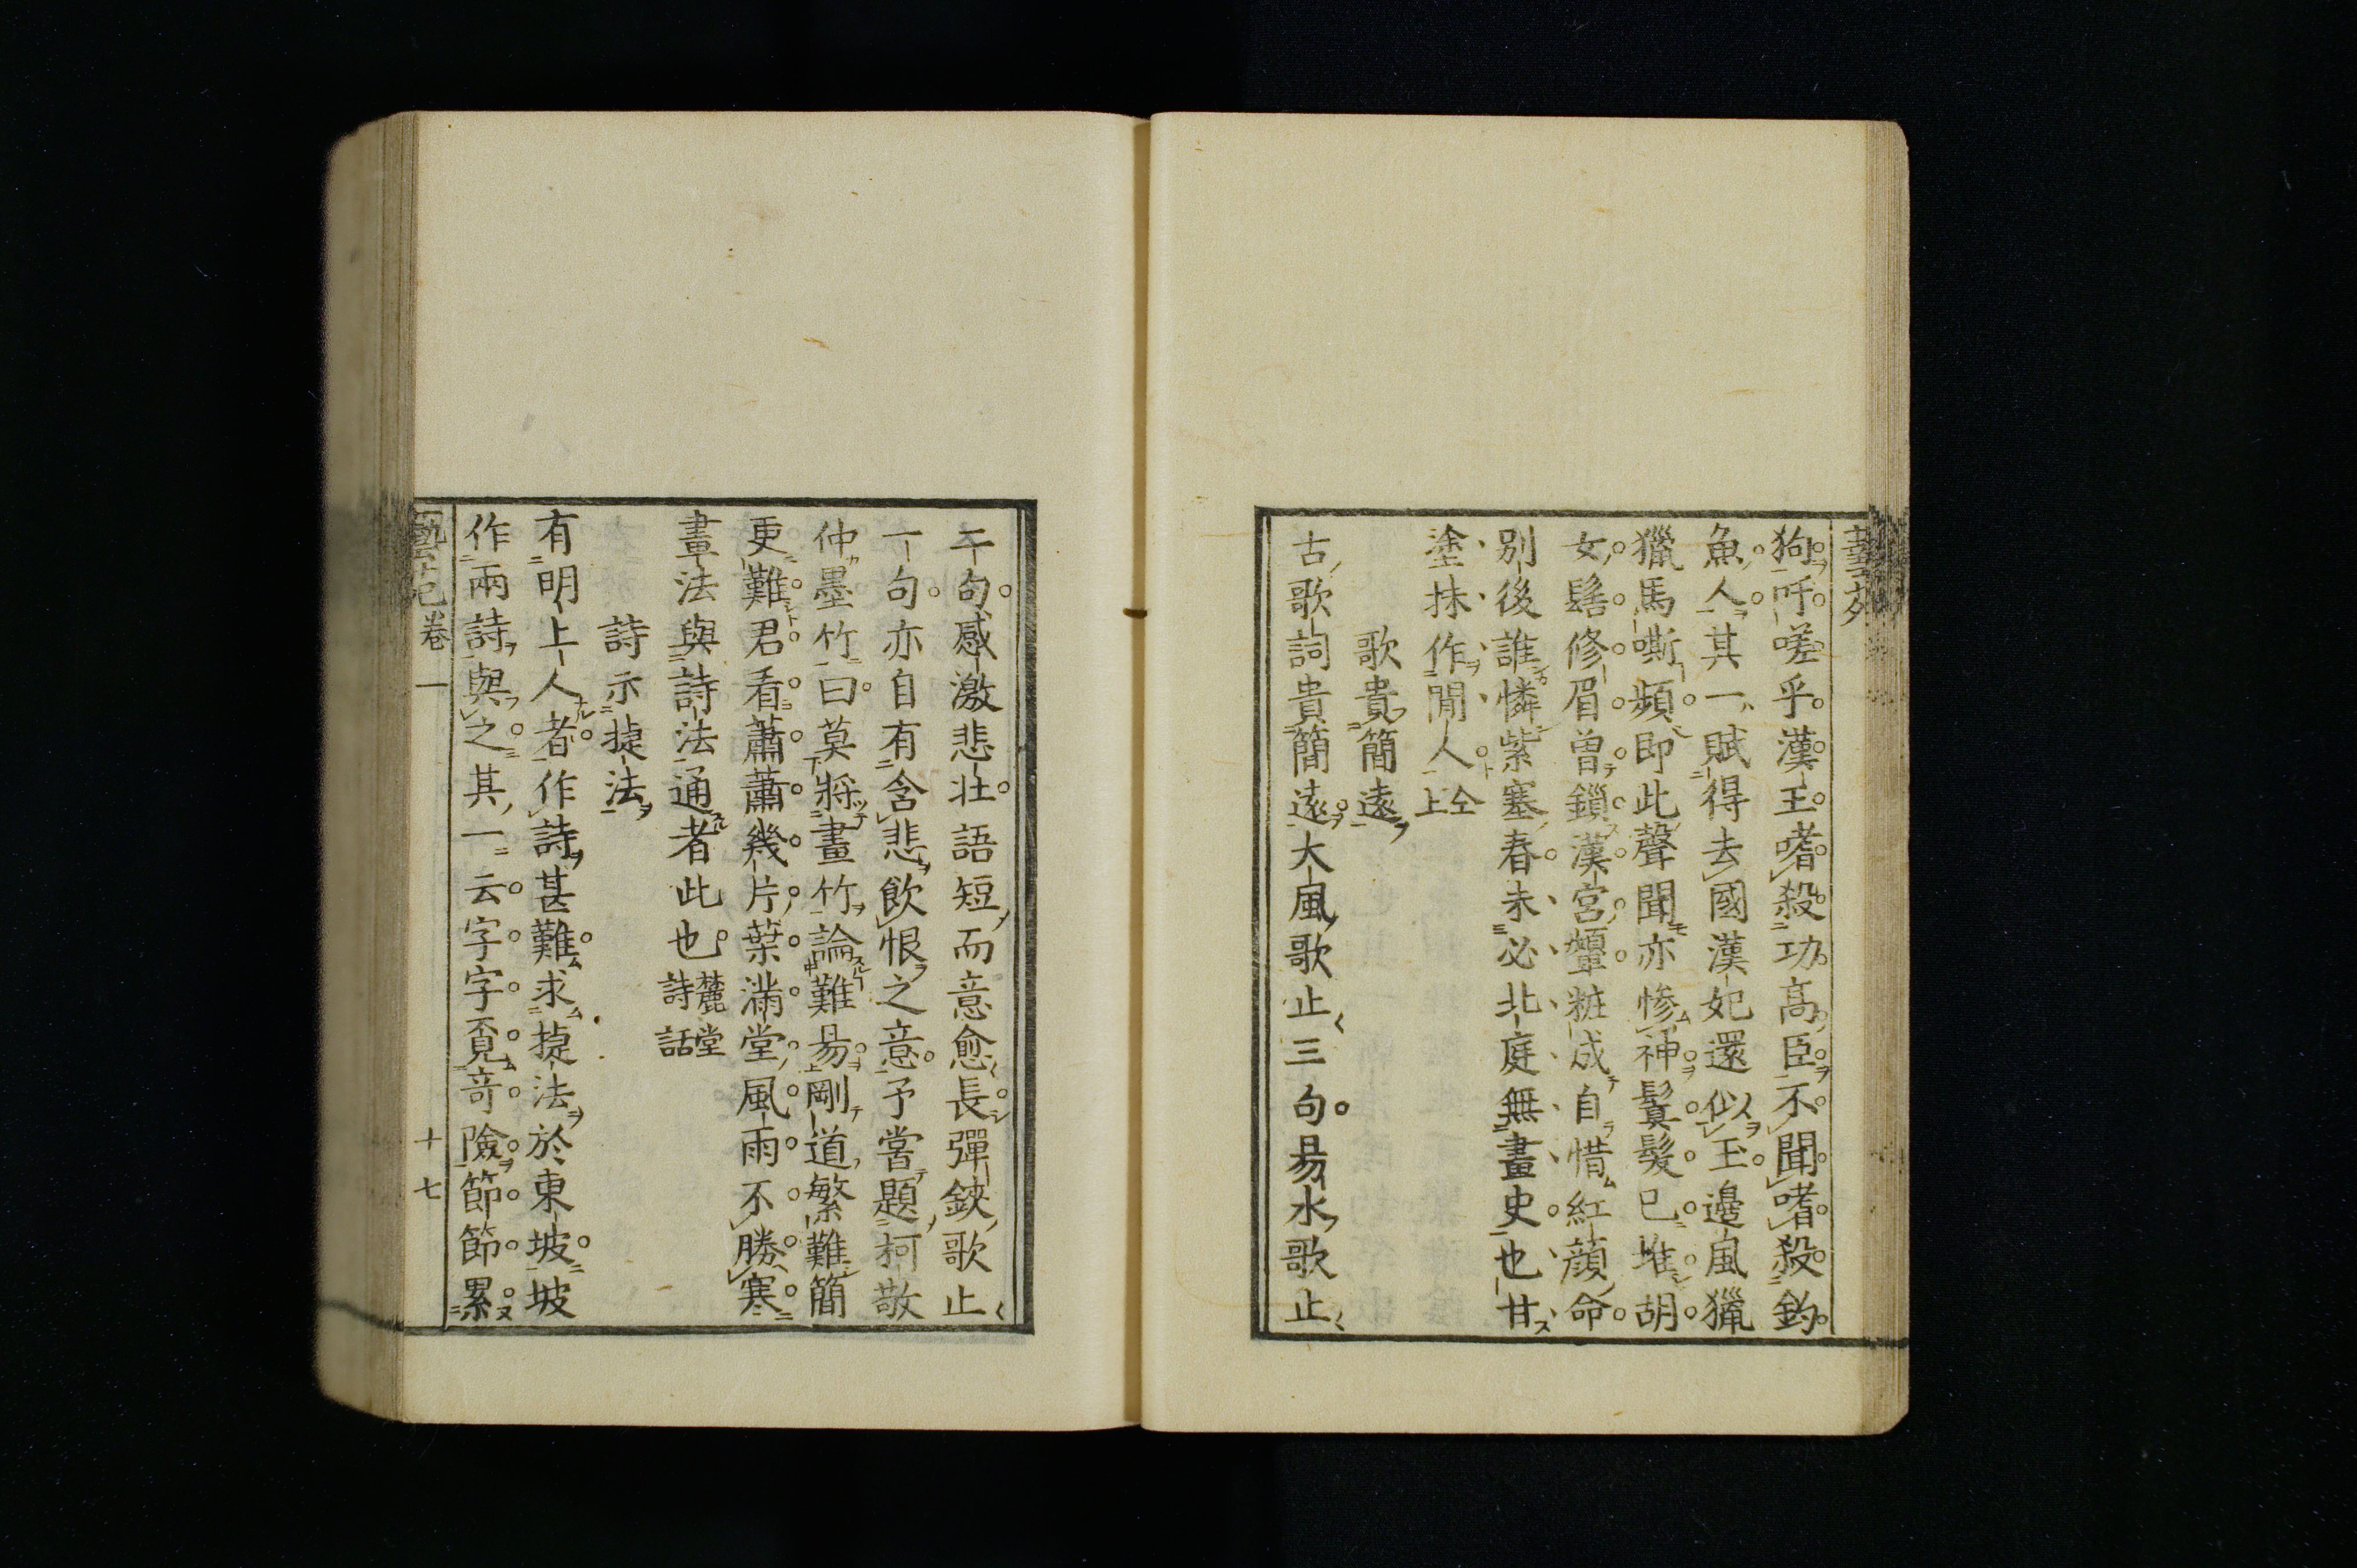 藝苑
狗吁嗟乎漢王嗜殺功高臣不聞嗜殺釣
魚人其一賦得去國漢妃還似玉邊風獵
獵馬嘶頻即此聲聞亦惨神鬂髮已堆胡
女髻修眉曾鎖漢宮顰粧成自惜紅顔命
別後誰憐紫塞春未必北庭無畫史也甘
塗抹作閒人仝上
歌貴簡遠
古歌詞貴簡遠大風歌止三句易水歌止
二句感激悲壮語短而意愈長彈鋏歌止
一句亦自有含悲飲恨之意予嘗題柯敬
仲墨竹曰莫將畫竹論難易剛道繁難簡
更難君看蕭蕭幾片葉滿堂風雨不勝寒
畫法與詩法通者此也麓堂詩話
詩示捷法
有明上人者作詩甚難求捷法於東坡坡
作兩詩與之其一云字字覔奇險節節累
卷一
十七